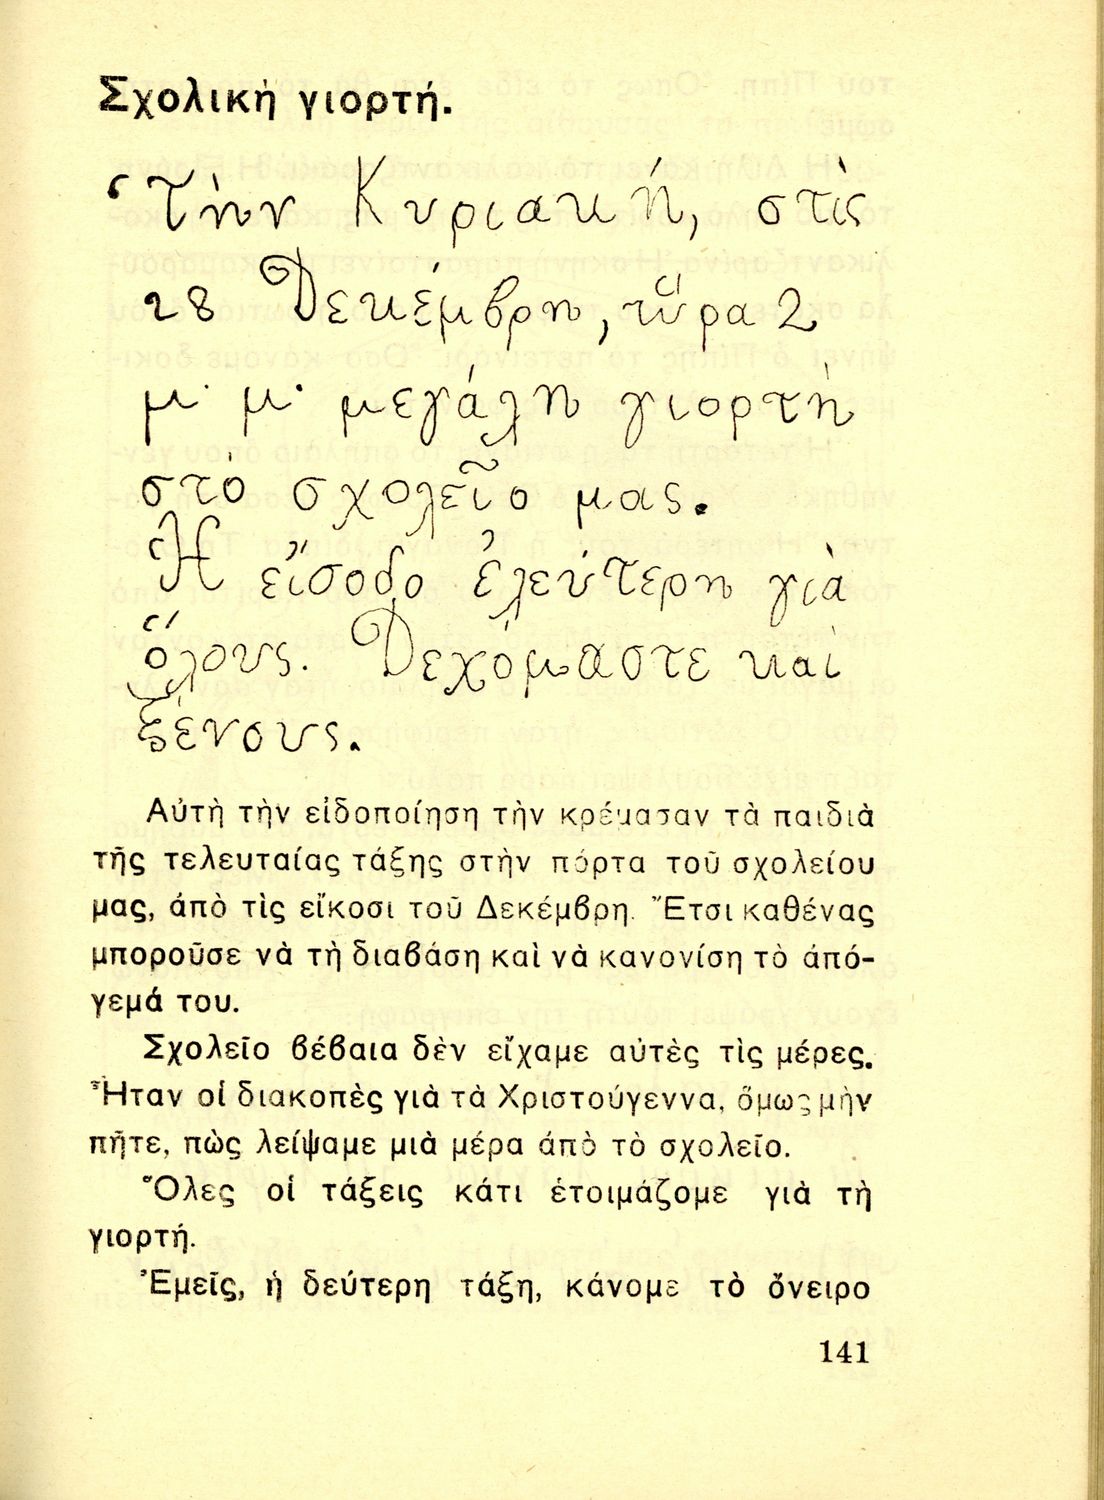 Σχολικὴ γιορτή.
Τὴν Κυριακή, στὶς
28 Δεκέμβρη, τὥρα 2
μ· μ· μεγάλη γιορτὴ
στὸ σχολεῖο μας.
Ἡ εἴσοδο ἐλεύτερη γιὰ
ὅλους. Δεχόμαστε καὶ
ξένους.
Αὐτὴ τὴν εἰδοποίηση τὴν κρέμασαν τὰ παιδιὰ
τῆς τελευταίας τάξης στὴν πόρτα τοῦ σχολείου
μας, ἀπὸ τὶς εἴκοσι τοῦ Δεκέμβρη. Ἔτσι καθένας
μποροῦσε νὰ τὴ διαβάση καὶ νὰ κανονίση τὸ ἀπό-
γεμά του.
Σχολεῖο βέβαια δὲν εἴχαμε αὐτὲς τὶς μέρες.
Ἦταν οἱ διακοπὲς γιὰ τὰ Χριστούγεννα, ὅμως μὴν
πῆτε, πὼς λείψαμε μιὰ μέρα ἀπὸ τὸ σχολεῖο.
Ὅλες οἱ τάξεις κάτι ἑτοιμάζομε γιὰ τὴ
γιορτή.
Ἐμεῖς, ἡ δεύτερη τάξη, κάνομε τὸ ὄνειρο
141